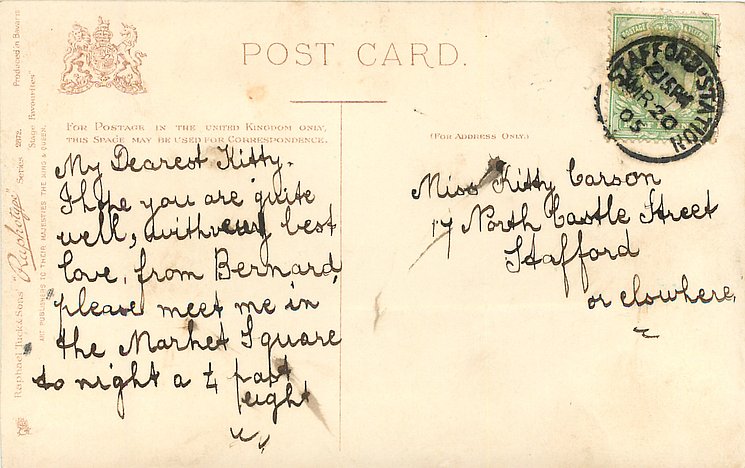 POST CARD.
FOR POSTAGE IN THE UNITED KINGDOM ONLY,
THIS SPACE MAY BE USED FOR CORRESPONDENCE.
(FOR ADDRESS ONLY.)
My Dearest Kitty.
I hope you are quite
well, with very best
love, from Bernard,
please meet me in
the Market Square
to night a ¼ past
eight
Miss Kitty Carson
17 North Castle Street
Stafford
or elowhere,
STAFFORD·STATION
215PM
MR 20
05
POSTAGE
Raphael Tuck & Sons' "Raphotype" Series 2872. Stage Favourites" Produced in Bavaria
ART PUBLISHERS TO THEIR MAJESTIES THE KING & QUEEN.